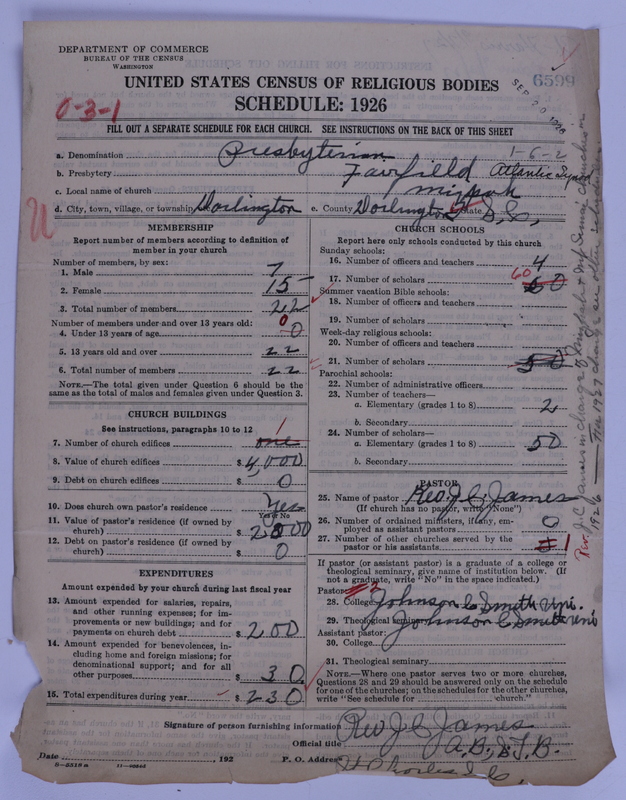 DEPARTMENT OF COMMERCE
BUREAU OF THE CENSUS
WASHINGTON
UNITED STATES CENSUS OF RELIGIOUS BODIES
SCHEDULE: 1926
0-3-1
SEP 20 1926
6599
FILL OUT A SEPARATE SCHEDULE FOR EACH CHURCH. SEE INSTRUCTIONS ON THE BACK OF THIS SHEET
1-6-2
a. Denomination Presbyterian
b. Presbytery Fairfield Atlantic Synod
c. Local name of church Mizpah
d. City, town, village, or township Darlington e. County Darlington State S.C.
MEMBERSHIP
Report number of members according to definition of member in your church
Number of members, by sex:
1. Male 7
2. Female 15
3. Total number of members 22
Number of members under and over 13 years old:
4. Under 13 years of age 0
5. 13 years old and over 22
6. Total number of members 22
NOTE.—The total given under Question 6 should be the same as the total of males and females given under Question 3.
CHURCH BUILDINGS
See instructions, paragraphs 10 to 12
7. Number of church edifices one 1
8. Value of church edifices $ 4,000
9. Debt on church edifices $ 0
10. Does church own pastor's residence? Yes
Yes or No
11. Value of pastor's residence (if owned by church) $ 2000
12. Debt on pastor's residence (if owned by church) $ 0
EXPENDITURES
Amount expended by your church during last fiscal year
13. Amount expended for salaries, repairs, and other running expenses; for improvements or new buildings; and for payments on church debt $ 200
14. Amount expended for benevolences, including home and foreign missions; for denominational support; and for all other purposes $ 30
15. Total expenditures during year $ 230
CHURCH SCHOOLS
Report here only schools conducted by this church
Sunday schools:
16. Number of officers and teachers 4
17. Number of scholars 60
Summer vacation Bible schools:
18. Number of officers and teachers
19. Number of scholars
Week-day religious schools:
20. Number of officers and teachers
21. Number of scholars 50
Parochial schools:
22. Number of administrative officers
23. Number of teachers—
a. Elementary (grades 1 to 8) 2
b. Secondary
24. Number of scholars—
a. Elementary (grades 1 to 8) 50
b. Secondary
PASTOR
25. Name of pastor Rev. J. C. James
(If church has no pastor, write "None")
26. Number of ordained ministers, if any, employed as assistant pastors 0
27. Number of other churches served by the pastor or his assistants 1
If pastor (or assistant pastor) is a graduate of a college or theological seminary, give name of institution below. (If not a graduate, write "No" in the space indicated.)
Pastor: 2
28. College Johnson C Smith Uni.
29. Theological seminary Johnson C Smith Uni
Assistant pastor:
30. College
31. Theological seminary
NOTE.—Where one pastor serves two or more churches, Questions 28 and 29 should be answered only on the schedule for one of the churches; on the schedules for the other churches, write "See schedule for church."
Signature of person furnishing information Rev J. C. James
Official title A.B., S.T.B.
Date , 192 P. O. Address
8-5518a
Rev. J. C. James in charge of Mizpah & Mt Sinai churches in 1926